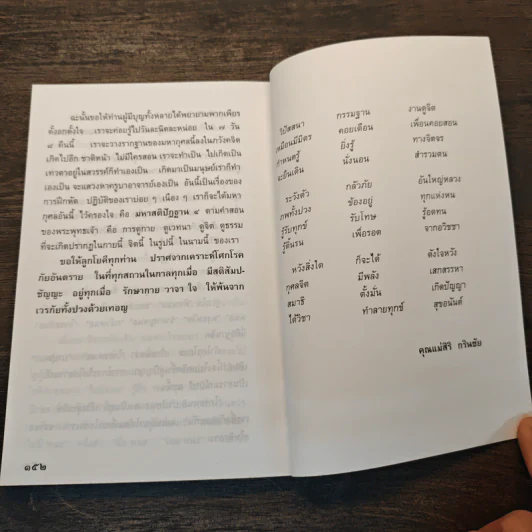 ฉะนั้นขอให้ท่านผู้มีบุญทั้งหลายได้พยายามพากเพียร
ตั้งอกตั้งใจ เราจะค่อยรู้ไปวันละนิดละหน่อย ใน ๗ วัน
๘ คืนนี้ เราจะวางรากฐานของมหากุศลนี้ลงในภวังคจิต
เกิดไปอีก ชาติหน้า ไม่มีใครสอน เราจะทำเป็น ไปเกิดเป็น
เทวดาอยู่ในสวรรค์ก็ทำเองเป็น เกิดมาเป็นมนุษย์เราก็ทำ
เองเป็น จะแสวงหาครูบาอาจารย์เองเป็น อันนี้เป็นเรื่องของ
การฝึกหัด ปฏิบัติของเราบ่อย ๆ เนือง ๆ เราก็จะได้มหา
กุศลอันนี้ ไว้ครองใจ คือ มหาสติปัฏฐาน ๔ ตามคำสอน
ของพระพุทธเจ้า คือ การดูกาย ดูเวทนา ดูจิต ดูธรรม
ที่จะเกิดปรากฏในกายนี้ จิตนี้ ในรูปนี้ ในนามนี้ ของเรา
ขอให้ลูกโยคีทุกท่าน ปราศจากเคราะห์โศกโรค
ภัยอันตราย ในที่ทุกสถานในกาลทุกเมื่อ มีสติสัมป-
ชัญญะ อยู่ทุกเมื่อ รักษากาย วาจา ใจ ให้พ้นจาก
เวรภัยทั้งปวงด้วยเทอญ
๑๕๒
วิปัสสนา กรรมฐาน งานดูจิต
เหมือนมีมิตร คอยเตือน เพื่อนคอยสอน
กำหนดรู้ ยิ่งรู้ ทางจิตจร
จะยืนเดิน นั่งนอน สำรวมตน
ระวังตัว กลัวภัย อันใหญ่หลวง
ภพทั้งปวง ข้องอยู่ ทุกแห่งหน
รู้รับทุกข์ รับโทษ รู้อดทน
รู้ดิ้นรน เพื่อรอด จากอวิชชา
หวังสิ่งใด ก็จะได้ ดังใจหวัง
กุศลจิต มีพลัง เสกสรรหา
สมาธิ ตั้งมั่น เกิดปัญญา
ได้วิชา ทำลายทุกข์ สุขอนันต์
คุณแม่สิริ กรินชัย